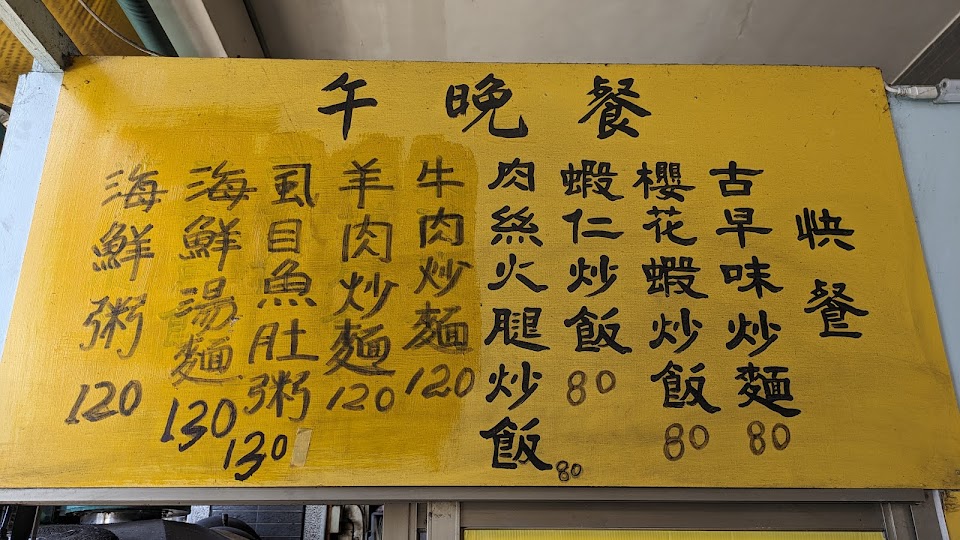 午晚餐
快餐
古早味炒麵 80
櫻花蝦炒飯 80
蝦仁炒飯 80
肉絲火腿炒飯 80
牛肉炒麵 120
羊肉炒麵 120
虱目魚肚粥 130
海鮮湯麵 130
海鮮粥 120